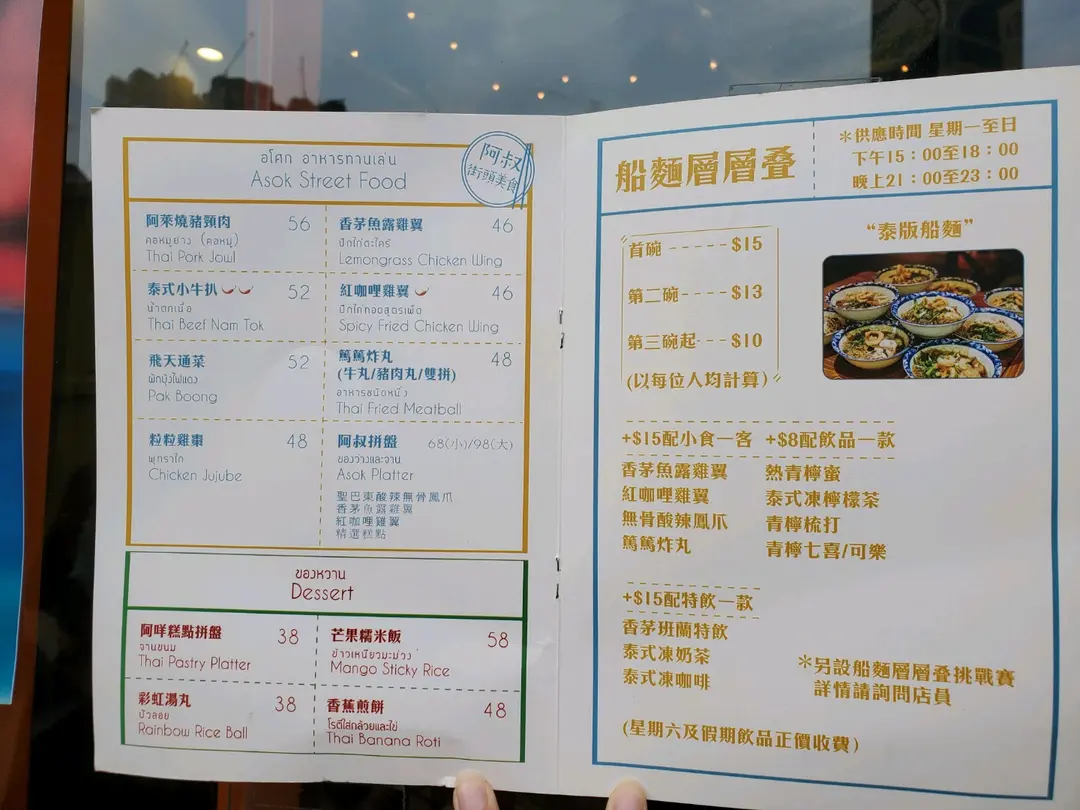 อโศก อาหารทานเล่น
Asok Street Food
阿叔
街頭美食
阿萊燒豬頸肉 56
คอหมูย่าง (คอหมู)
Thai Pork Jowl
香茅魚露雞翼 46
ปีกไก่ตะไคร้
Lemongrass Chicken Wing
泰式小牛扒 52
น้ำตกเนื้อ
Thai Beef Nam Tok
紅咖哩雞翼 46
ปีกไก่ทอดสูตรเผ็ด
Spicy Fried Chicken Wing
飛天通菜 52
ผักบุ้งไฟแดง
Pak Boong
篤篤炸丸 48
(牛丸/豬肉丸/雙拼)
อาหารชนิดหนึ่ง
Thai Fried Meatball
粒粒雞棗 48
พุทราไก่
Chicken Jujube
阿叔拼盤 68(小)/98(大)
ของว่างและจาน
Asok Platter
聖巴東酸辣無骨鳳爪
香茅魚露雞翼
紅咖哩雞翼
精選糕點
ของหวาน
Dessert
阿咩糕點拼盤 38
จานขนม
Thai Pastry Platter
芒果糯米飯 58
ข้าวเหนียวมะม่วง
Mango Sticky Rice
彩虹湯丸 38
บัวลอย
Rainbow Rice Ball
香蕉煎餅 48
โรตีใส่กล้วยและไข่
Thai Banana Roti
船麵層層叠
*供應時間 星期一至日
下午15:00至18:00
晚上21:00至23:00
首碗 -----$15
第二碗----$13
第三碗起---$10
(以每位人均計算)
“泰版船麵”
+$15配小食一客
香茅魚露雞翼
紅咖哩雞翼
無骨酸辣鳳爪
篤篤炸丸
+$8配飲品一款
熱青檸蜜
泰式凍檸檬茶
青檸梳打
青檸七喜/可樂
+$15配特飲一款
香茅班蘭特飲
泰式凍奶茶
泰式凍咖啡
*另設船麵層層叠挑戰賽
詳情請詢問店員
(星期六及假期飲品正價收費)